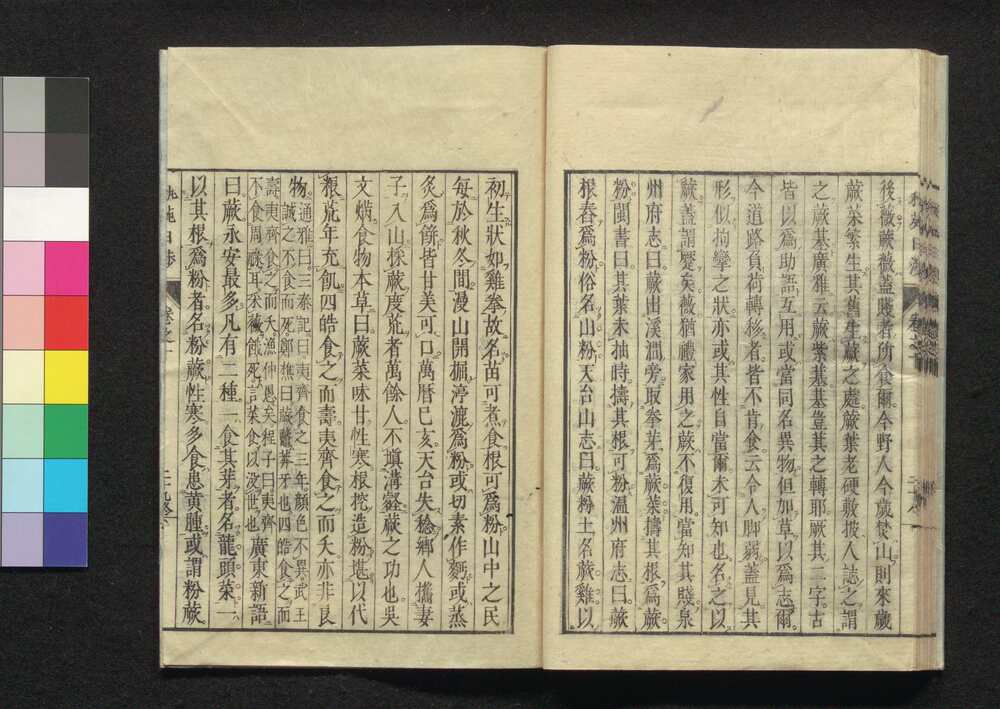 後薇蕨薇蓋賤者所食爾今野人今歲焚山則來歲
蕨菜繁生其舊生蕨之處蕨葉老硬敷披人誌之謂
之蕨基廣雅云蕨紫萁基豈萁之轉耶厥其二字古
皆以爲助語互用或當同名異物但加草以爲志爾
今道路負荷轉移者皆不肯食云令人脚弱蓋見其
形似拘攣之狀亦或其性自當爾未可知也名之以
蕨蓋謂蹷矣薇猶禮家用之蕨不復用當知其賤泉
州府志曰蕨出溪澗旁取拳芽爲蕨菜擣其根爲蕨
粉閩書曰其葉未抽時擣其根可粉溫州府志曰蕨
根舂爲粉俗名山粉天台山志曰蕨粉土名蕨雞以
初生狀如雞拳故名苗可煮食根可爲粉山中之民
每於秋冬間漫山開掘渟漉爲粉或切素作麪或蒸
炙爲餅皆甘美可口萬曆巳亥天台失稔鄉人攜妻
子入山採蕨度荒者萬餘人不塡溝壑蕨之功也吳
文煐食物本草曰蕨菜味甘性寒根挖造粉進以代
粮荒年充飢四皓食之而壽夷齊食之而夭亦非良
物通雅曰三秦記曰夷齊食之三年顏色不異武王
誡之不食而死鄭樵曰蕨虌芽牙也四皓食之而
壽夷齊食之而夭漁仲愚矣程子曰夷齊
不食周祿耳采薇餓死言菜食以没世也廣東新語
曰蕨永安最多凡有二種一食其芽者名龍頭菜一
以其根爲粉者名粉蕨性寒多食患黄腫或謂粉蕨